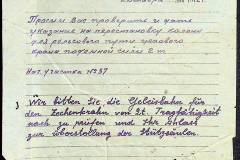 Просим Вас проверить и дать
указание на перестановку колонн
для рельсового пути
крана подъемной силы 2т.
Нач. участка №37
Wir bitten Sie die Geleisbahn für
den Zechenkran von 2t. Tragfähigkeit
nach zu prüfen und Ihr Anlass
zur Überstellung der Stützsäulen.